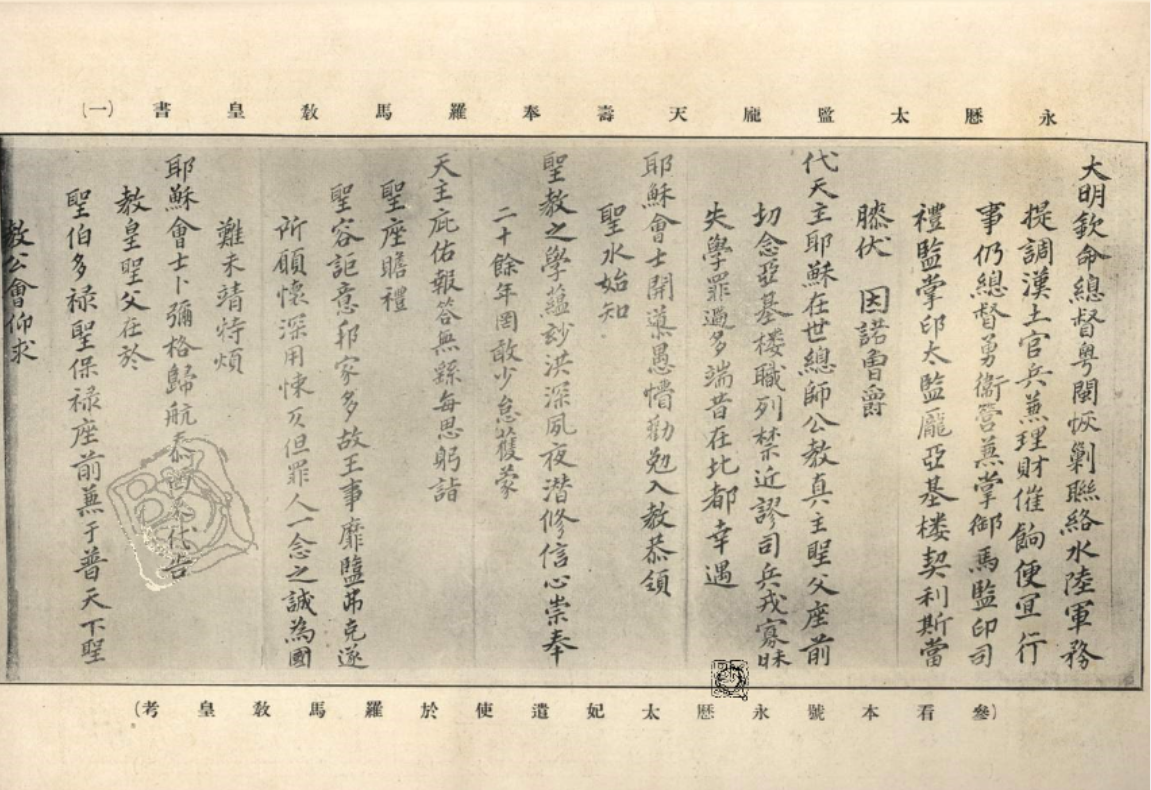 永曆太監龐天壽奉羅馬敎皇書（一）
大明欽命總督粵閩恢剿聯絡水陸軍務
提調漢土官兵兼理財催餉便宜行
事仍總督勇衛營兼掌御馬監印司
禮監掌印太監龐亞基樓契利斯當
膝伏　因諾曾爵
代天主耶穌在世總師公教真主聖父座前
切念亞基樓職列禁近謬司兵戎寡昧
失學罪過多端昔在北都幸遇
耶穌會士開導愚懵勸勉入教恭領
聖水始知
聖教之學蘊玅洪深夙夜潛修信心崇奉
二十餘年罔敢少怠獲蒙
天主庇佑報答無繇每思躬詣
聖座瞻禮
聖容詎意邦家多故王事靡盬弗克遂
所願懷深用悚仄但罪人一念之誠為國
難未靖特煩
耶穌會士卜彌格歸航泰西來代告
教皇聖父在於
聖伯多祿聖保祿座前兼于普天下聖
教公會仰求
（參看本號永曆太妃遣使於羅馬敎皇考）